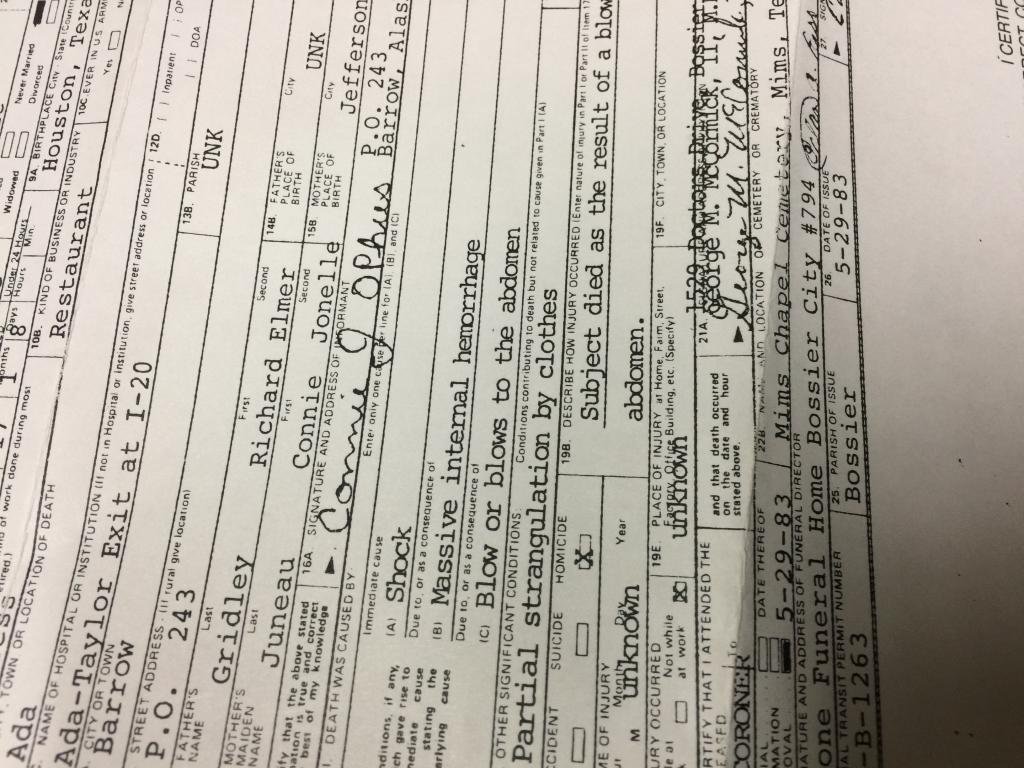 Never Married
Widowed Divorced
Under 24 Hours
Days Hours Min.
1 8
9A. BIRTHPLACE City - State
Houston, Texa
of work done during most
10B. KIND OF BUSINESS OR INDUSTRY
Restaurant
10C. EVER IN U.S. ARM
Yes
TOWN OR LOCATION OF DEATH
Ada
NAME OF HOSPITAL OR INSTITUTION (If not in Hospital or Institution, give street address or location)
Ada-Taylor Exit at I-20
12D. Inpatient OP
DOA
CITY OR TOWN
Barrow
13B. PARISH
UNK
STREET ADDRESS (If rural give location)
P.O. 243
FATHER'S NAME Last First Second
Gridley Richard Elmer
14B. FATHER'S PLACE OF BIRTH City
UNK
MOTHER'S MAIDEN NAME Last First Second
Juneau Connie Jonelle
15B. MOTHER'S PLACE OF BIRTH City
Jefferson
that the above stated
is true and correct
best of my knowledge
16A. SIGNATURE AND ADDRESS OF INFORMANT
Connie J
P.O. 243
Barrow, Alas
DEATH WAS CAUSED BY: Enter only one cause per line for (A), (B), and (C)
Immediate cause
(A) Shock
Due to, or as a consequence of
(B) Massive internal hemorrhage
Due to, or as a consequence of
(C) Blow or blows to the abdomen
conditions, if any,
which gave rise to
immediate cause
stating the
underlying cause
OTHER SIGNIFICANT CONDITIONS: Conditions contributing to death but not related to cause given in Part I (A)
Partial strangulation by clothes
ACCIDENT SUICIDE HOMICIDE
X
19B. DESCRIBE HOW INJURY OCCURRED (Enter nature of injury in Part I or Part II of Item 17
Subject died as the result of a blow
abdomen.
OF INJURY
Month Day Year
M unknown
INJURY OCCURRED
Not while
at work
X
19E. PLACE OF INJURY at Home, Farm, Street,
Factory, Office Building, etc. (Specify)
unknown
19F. CITY, TOWN, OR LOCATION
CERTIFY THAT I ATTENDED THE
DECEASED
and that death occurred
on the date and hour
stated above.
CORONER
21A.
1529 Doctors Drive, Bossier
George M. McCormick, II, M.
George M. McCormick
DATE THEREOF
5-29-83
22B. NAME AND LOCATION OF CEMETERY OR CREMATORY
Mims Chapel Cemetery, Mims, Te
SIGNATURE AND ADDRESS OF FUNERAL DIRECTOR
one Funeral Home Bossier City #794
TRANSIT PERMIT NUMBER
B-1263
25. PARISH OF ISSUE
Bossier
26. DATE OF ISSUE
5-29-83
27.
I CERTIF